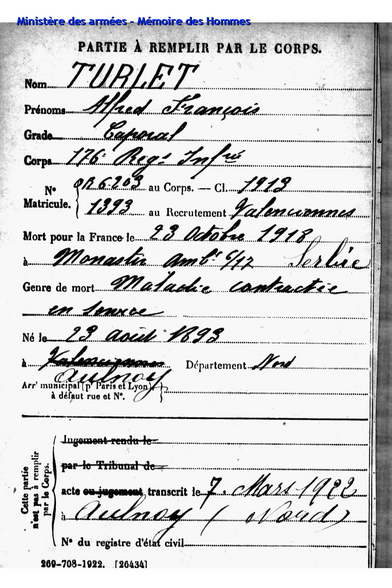 Ministère des armées - Mémoire des Hommes
PARTIE À REMPLIR PAR LE CORPS.
Nom TURLET
Prénoms Alfred François
Grade Caporal
Corps 176 Reg.t Inf.rie
N° Matricule. 6203 au Corps. — Cl. 1913
1393 au Recrutement Valenciennes
Mort pour la France le 23 Octobre 1918
à Monastir Amb.ce 6/17 Serbie
Genre de mort Maladie contractée
en service
Né le 23 août 1893
à Valenciennes Département Nord
Aulnoy
Arr' municipal (p' Paris et Lyon)
à défaut rue et N°.
Cette partie n'est pas à remplir par le Corps.
Jugement rendu le
par le Tribunal de
acte ou jugement transcrit le 7. Mars 1922
à Aulnoy (Nord)
N° du registre d'état civil
269-708-1922. [26434]